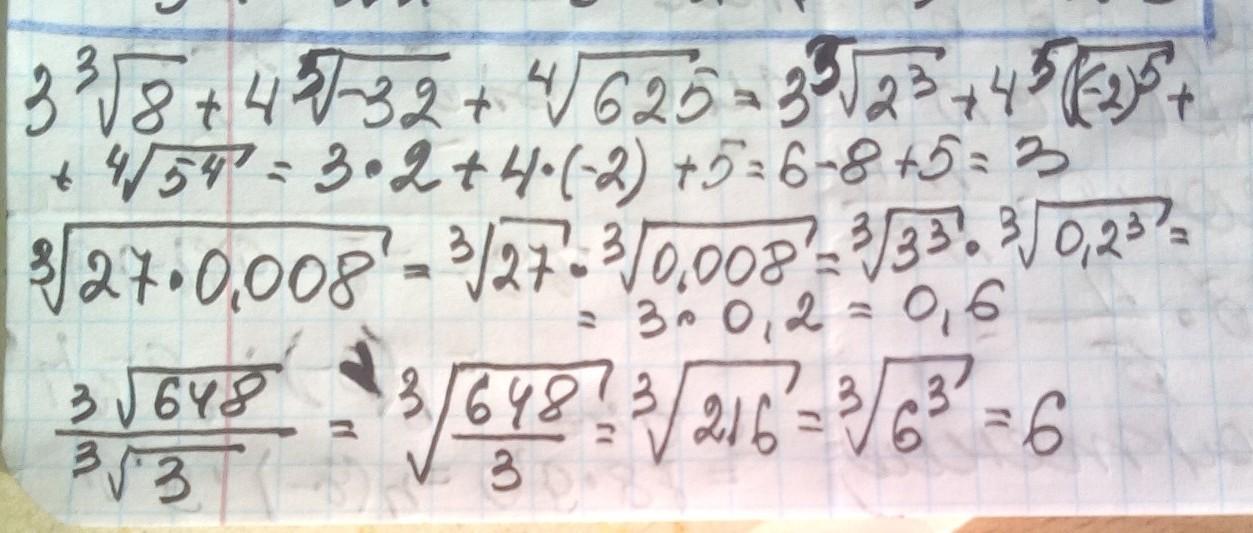 3∛8 + 4⁵√-32 + ⁴√625 = 3³√2³ + 4⁵√(-2)⁵ +
+ ⁴√5⁴ = 3·2 + 4·(-2) + 5 = 6-8+5 = 3
³√27·0,008 = ³√27 · ³√0,008 = ³√3³ · ³√0,2³ =
= 3·0,2 = 0,6
³√648 / ³√3 = ³√648/3 = ³√216 = ³√6³ = 6